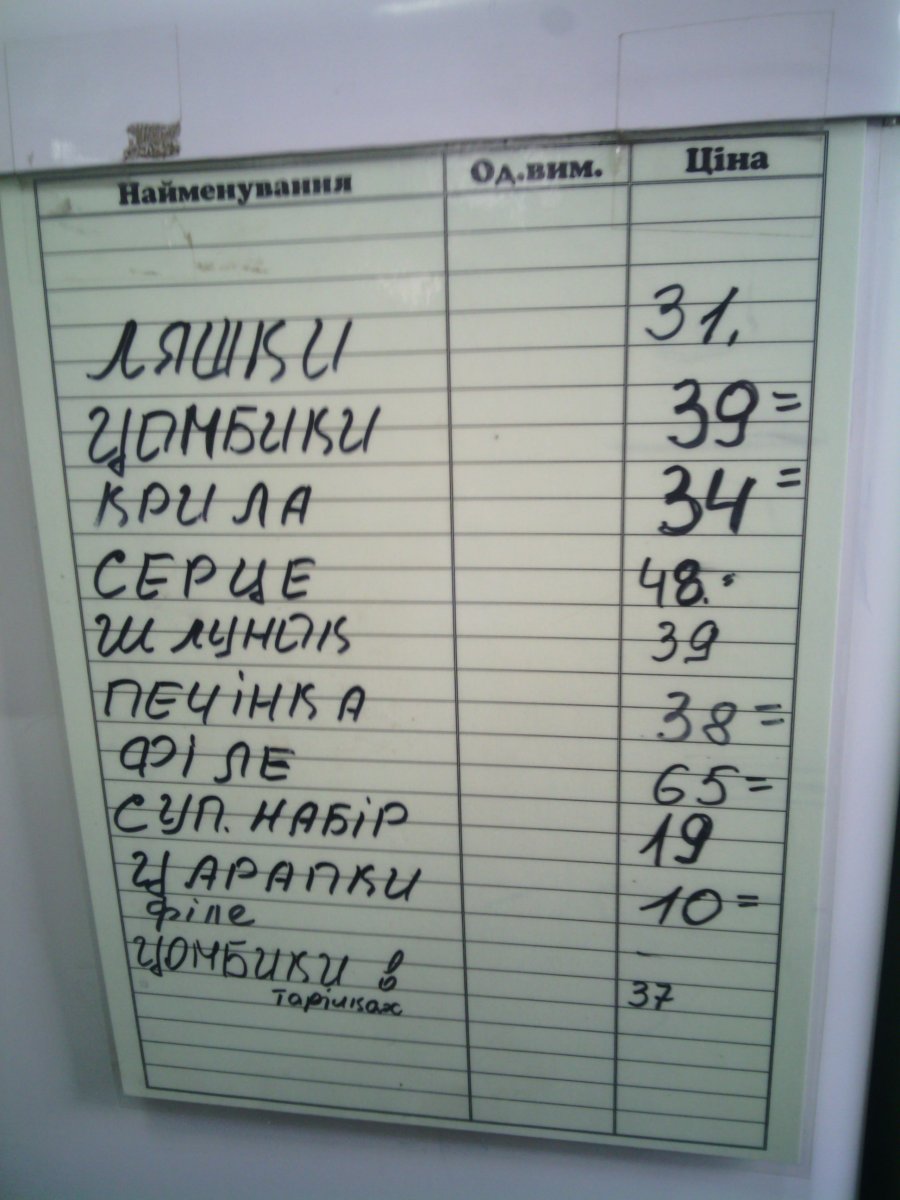 Найменування Од.вим. Ціна
ЛЯШКИ 31,
ЦОМБИКИ 39=
КРИЛА 34=
СЕРЦЕ 48.
ШЛУНОК 39
ПЕЧІНКА 38=
ФІЛЕ 65=
СУП. НАБІР 19
ЦАРАПКИ 10=
філе -
ЦОМБИКИ в
тарілках 37